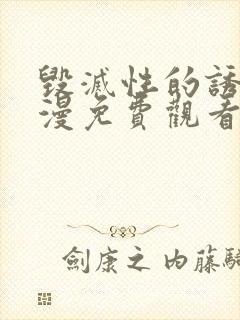 毀滅性的誘
漫免費觀看
劍康之 內藤騎